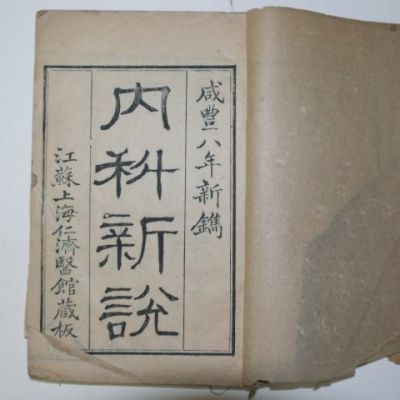 咸豐八年新鐫
內科新說
江蘇上海仁濟醫館藏板